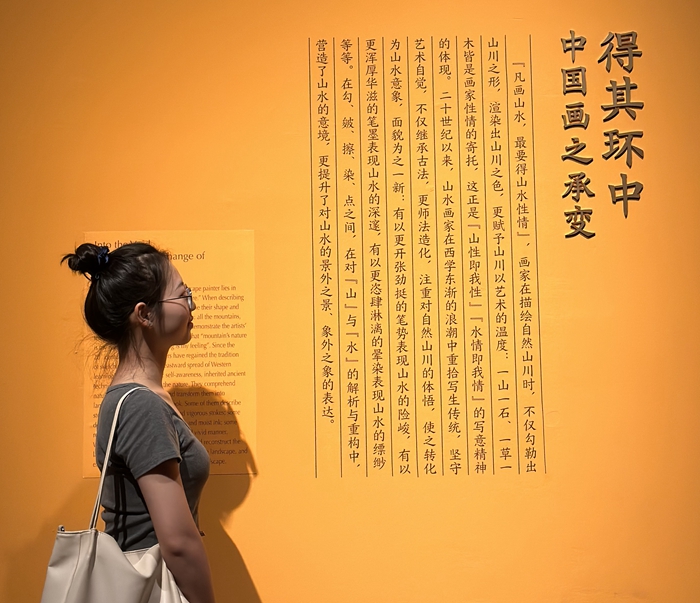 得其环中
中国画之承变
『凡画山水，最要得山水性情』，画家在描绘自然山川时，不仅勾勒出
山川之形，渲染出山川之色，更赋予山川以艺术的温度：一山一石、一草一
木皆是画家性情的寄托，这正是『山性即我性』『水情即我情』的写意精神
的体现。二十世纪以来，山水画家在西学东渐的浪潮中重拾写生传统，坚守
艺术自觉，不仅继承古法，更师法造化，注重对自然山川的体悟，使之转化
为山水意象，面貌为之一新：有以更开张劲挺的笔势表现山水的险峻，有以
更浑厚华滋的笔墨表现山水的深邃，有以更恣肆淋漓的晕染表现山水的缥缈
等等。在勾、皴、擦、染、点之间，在对『山』与『水』的解析与重构中，
营造了山水的意境，更提升了对山水的景外之景、象外之象的表达。
Into the
hange of
ape painter lies in
When describing
their shape and
all the mountains,
emonstrate the artists'
that "mountain's nature
my feeling". Since the
have regained the tradition
stward spread of Western
self-awareness, inherited ancient
the nature. They comprehend
transform them into
Some of them describe
and vigorous strokes; some
and monk ink; some
vivid manner.
reconstruct the
landscape, and
scape.